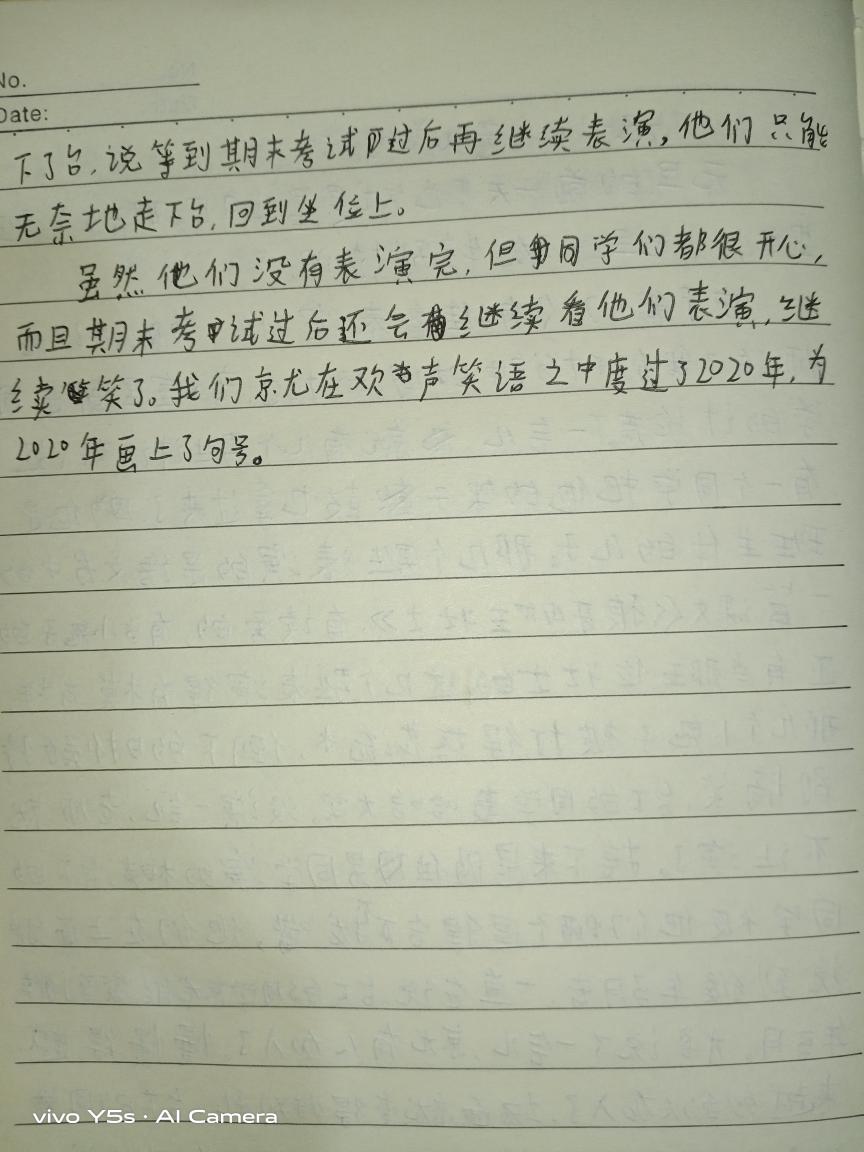 No.
Date:
下了台,说等到期末考试过后再继续表演,他们只能
无奈地走下台,回到坐位上。
虽然他们没有表演完,但同学们都很开心,
而且期末考试过后还会继续看他们表演,继
续笑了。我们就在欢声笑语之中度过了2020年,为
2020年画上了句号。
vivo Y5s · AI Camera